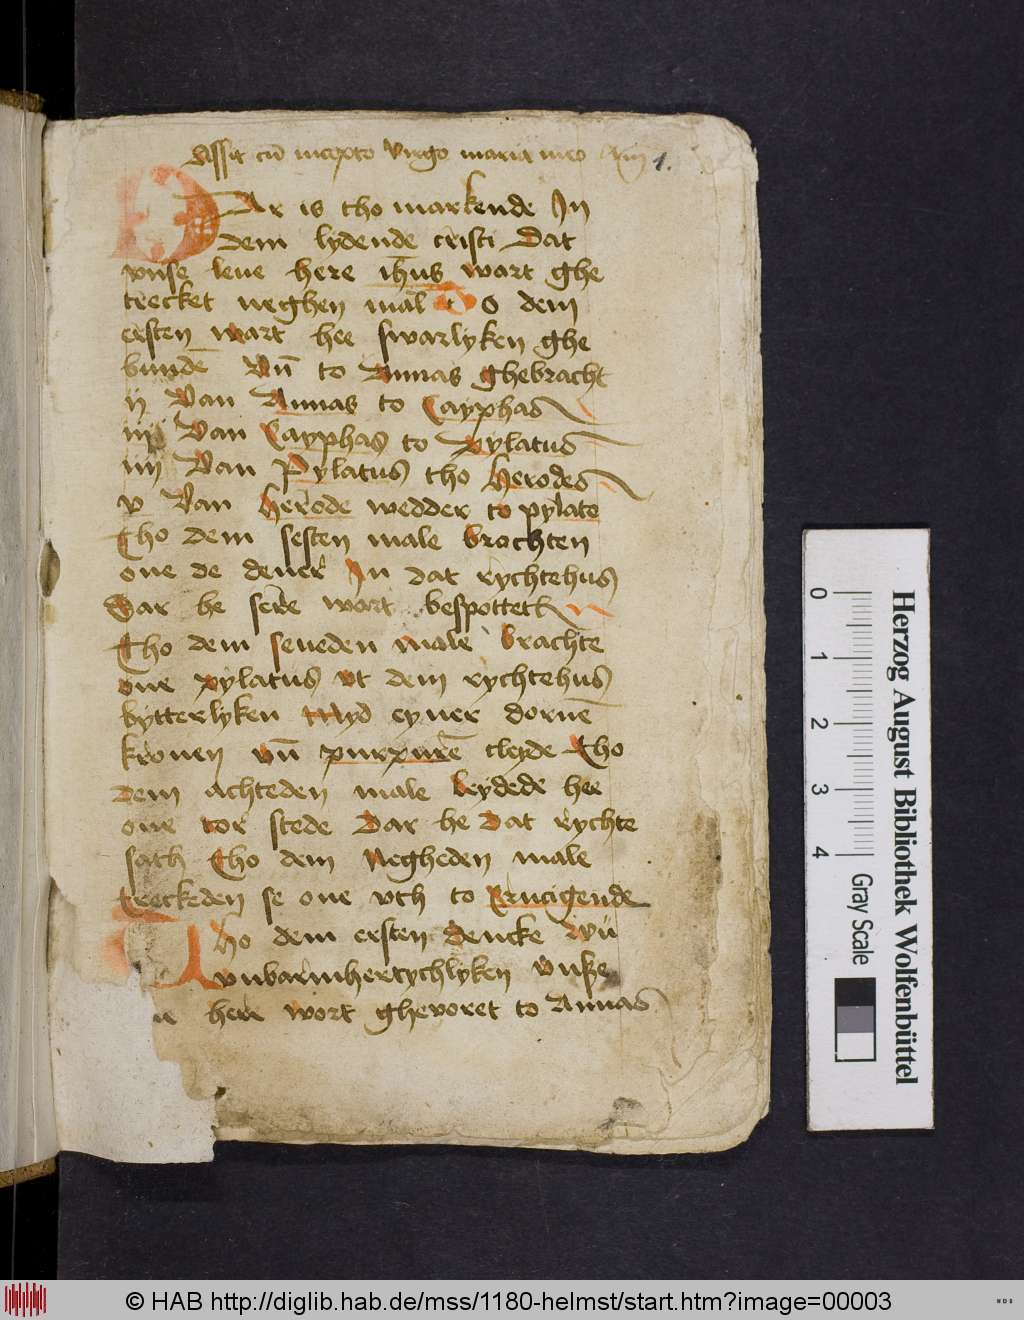 Assit cū incepto virgo maria meo Am 1.
DAr is tho markende In
dem lydende cristi Dat
vnse leue here ih̄us wart ghe
trecket neghen mal to dem
ersten wart hee swarlyken ghe
bundē Vn̄ to Annas ghebracht
ij Van Annas to Cayphas
iij Van Cayphas to pylatus
iiij Van Pylatus tho Herodes
v Van herode wedder to pylate
Tho dem sesten male brochten
one de dener In dat rychtehus
Dar he sere wart bespottet
Tho dem seueden male brachte
one pylatus vt dem rychtehus
bytterlyken Myd eyner dornē
kronen vn̄ purpurē cleyde Tho
dem achteden male leydede hee
one tor stede Dar he dat rychte
sath Tho dem Negheden male
treckeden se one vth to Crucigende
Tho dem ersten dencke wu
vnbarmhertychlyken vnse
here wort ghevoret to Annas
0 1 2 3 4 Gray Scale
Herzog August Bibliothek Wolfenbüttel
© HAB http://diglib.hab.de/mss/1180-helmst/start.htm?image=00003